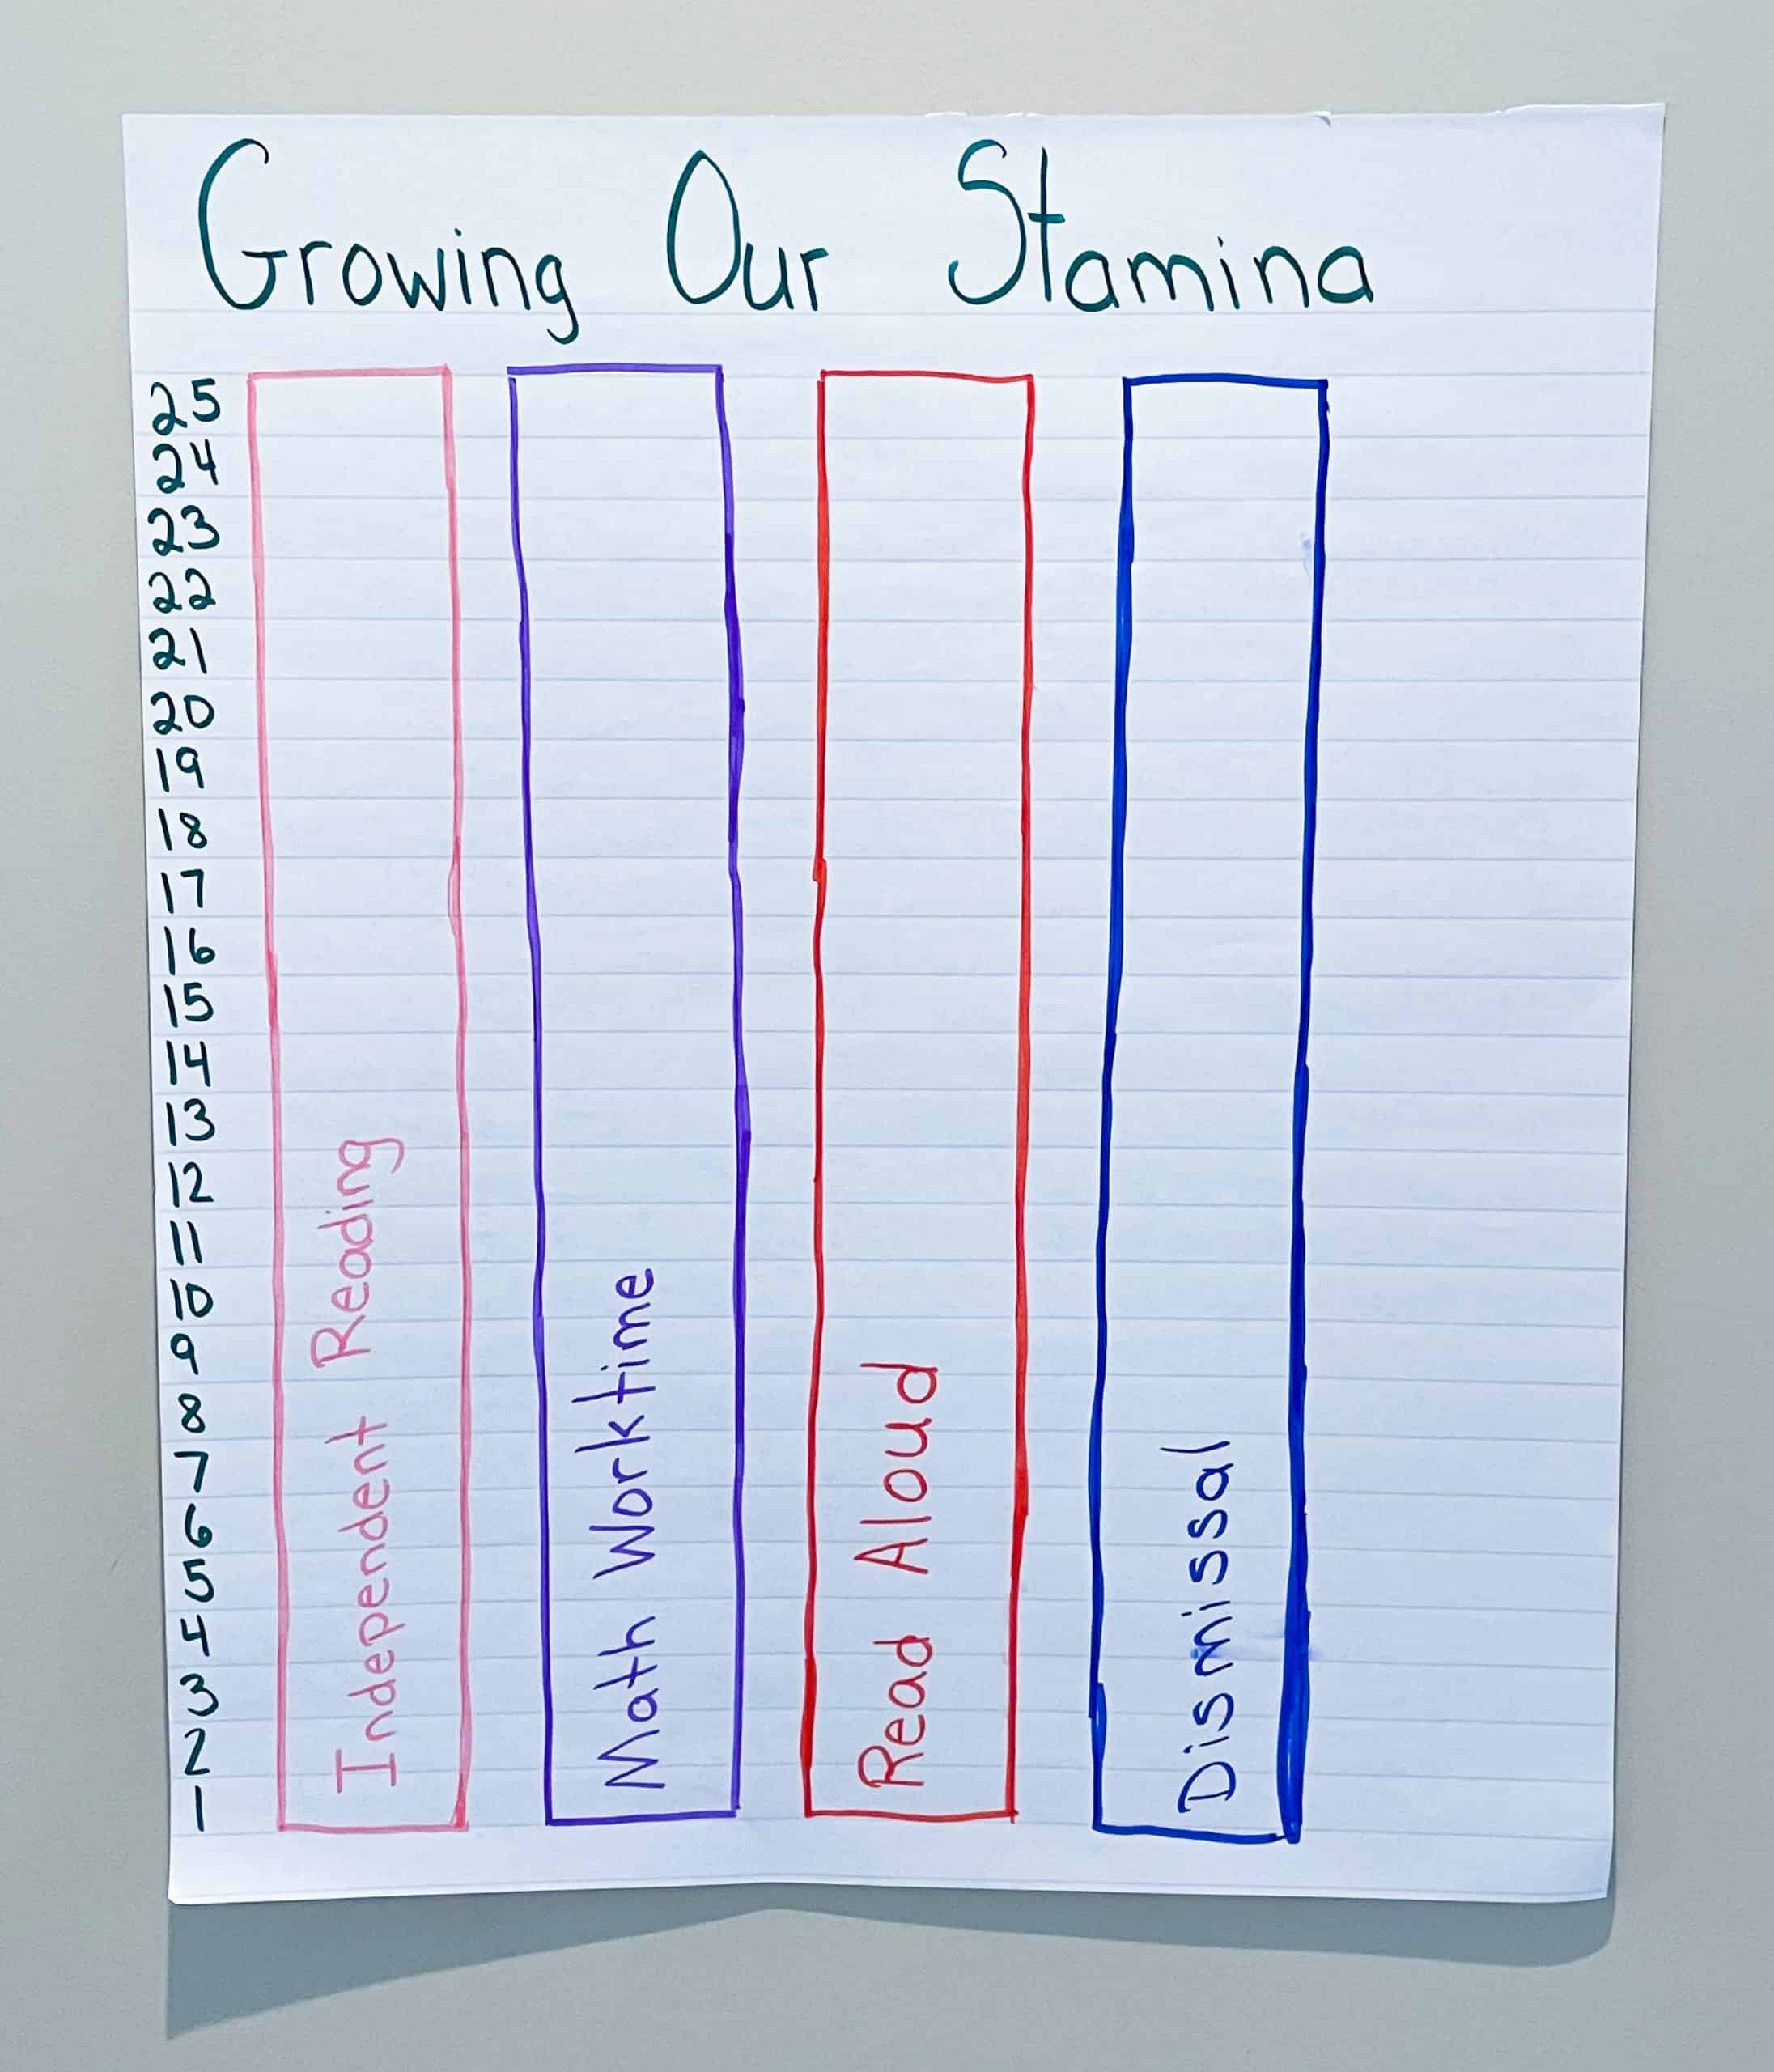 Growing Our Stamina
25
24
23
22
21
20
19
18
17
16
15
14
13
12
11
10
9
8
7
6
5
4
3
2
1
Independent Reading
Math Worktime
Read Aloud
Dismissal